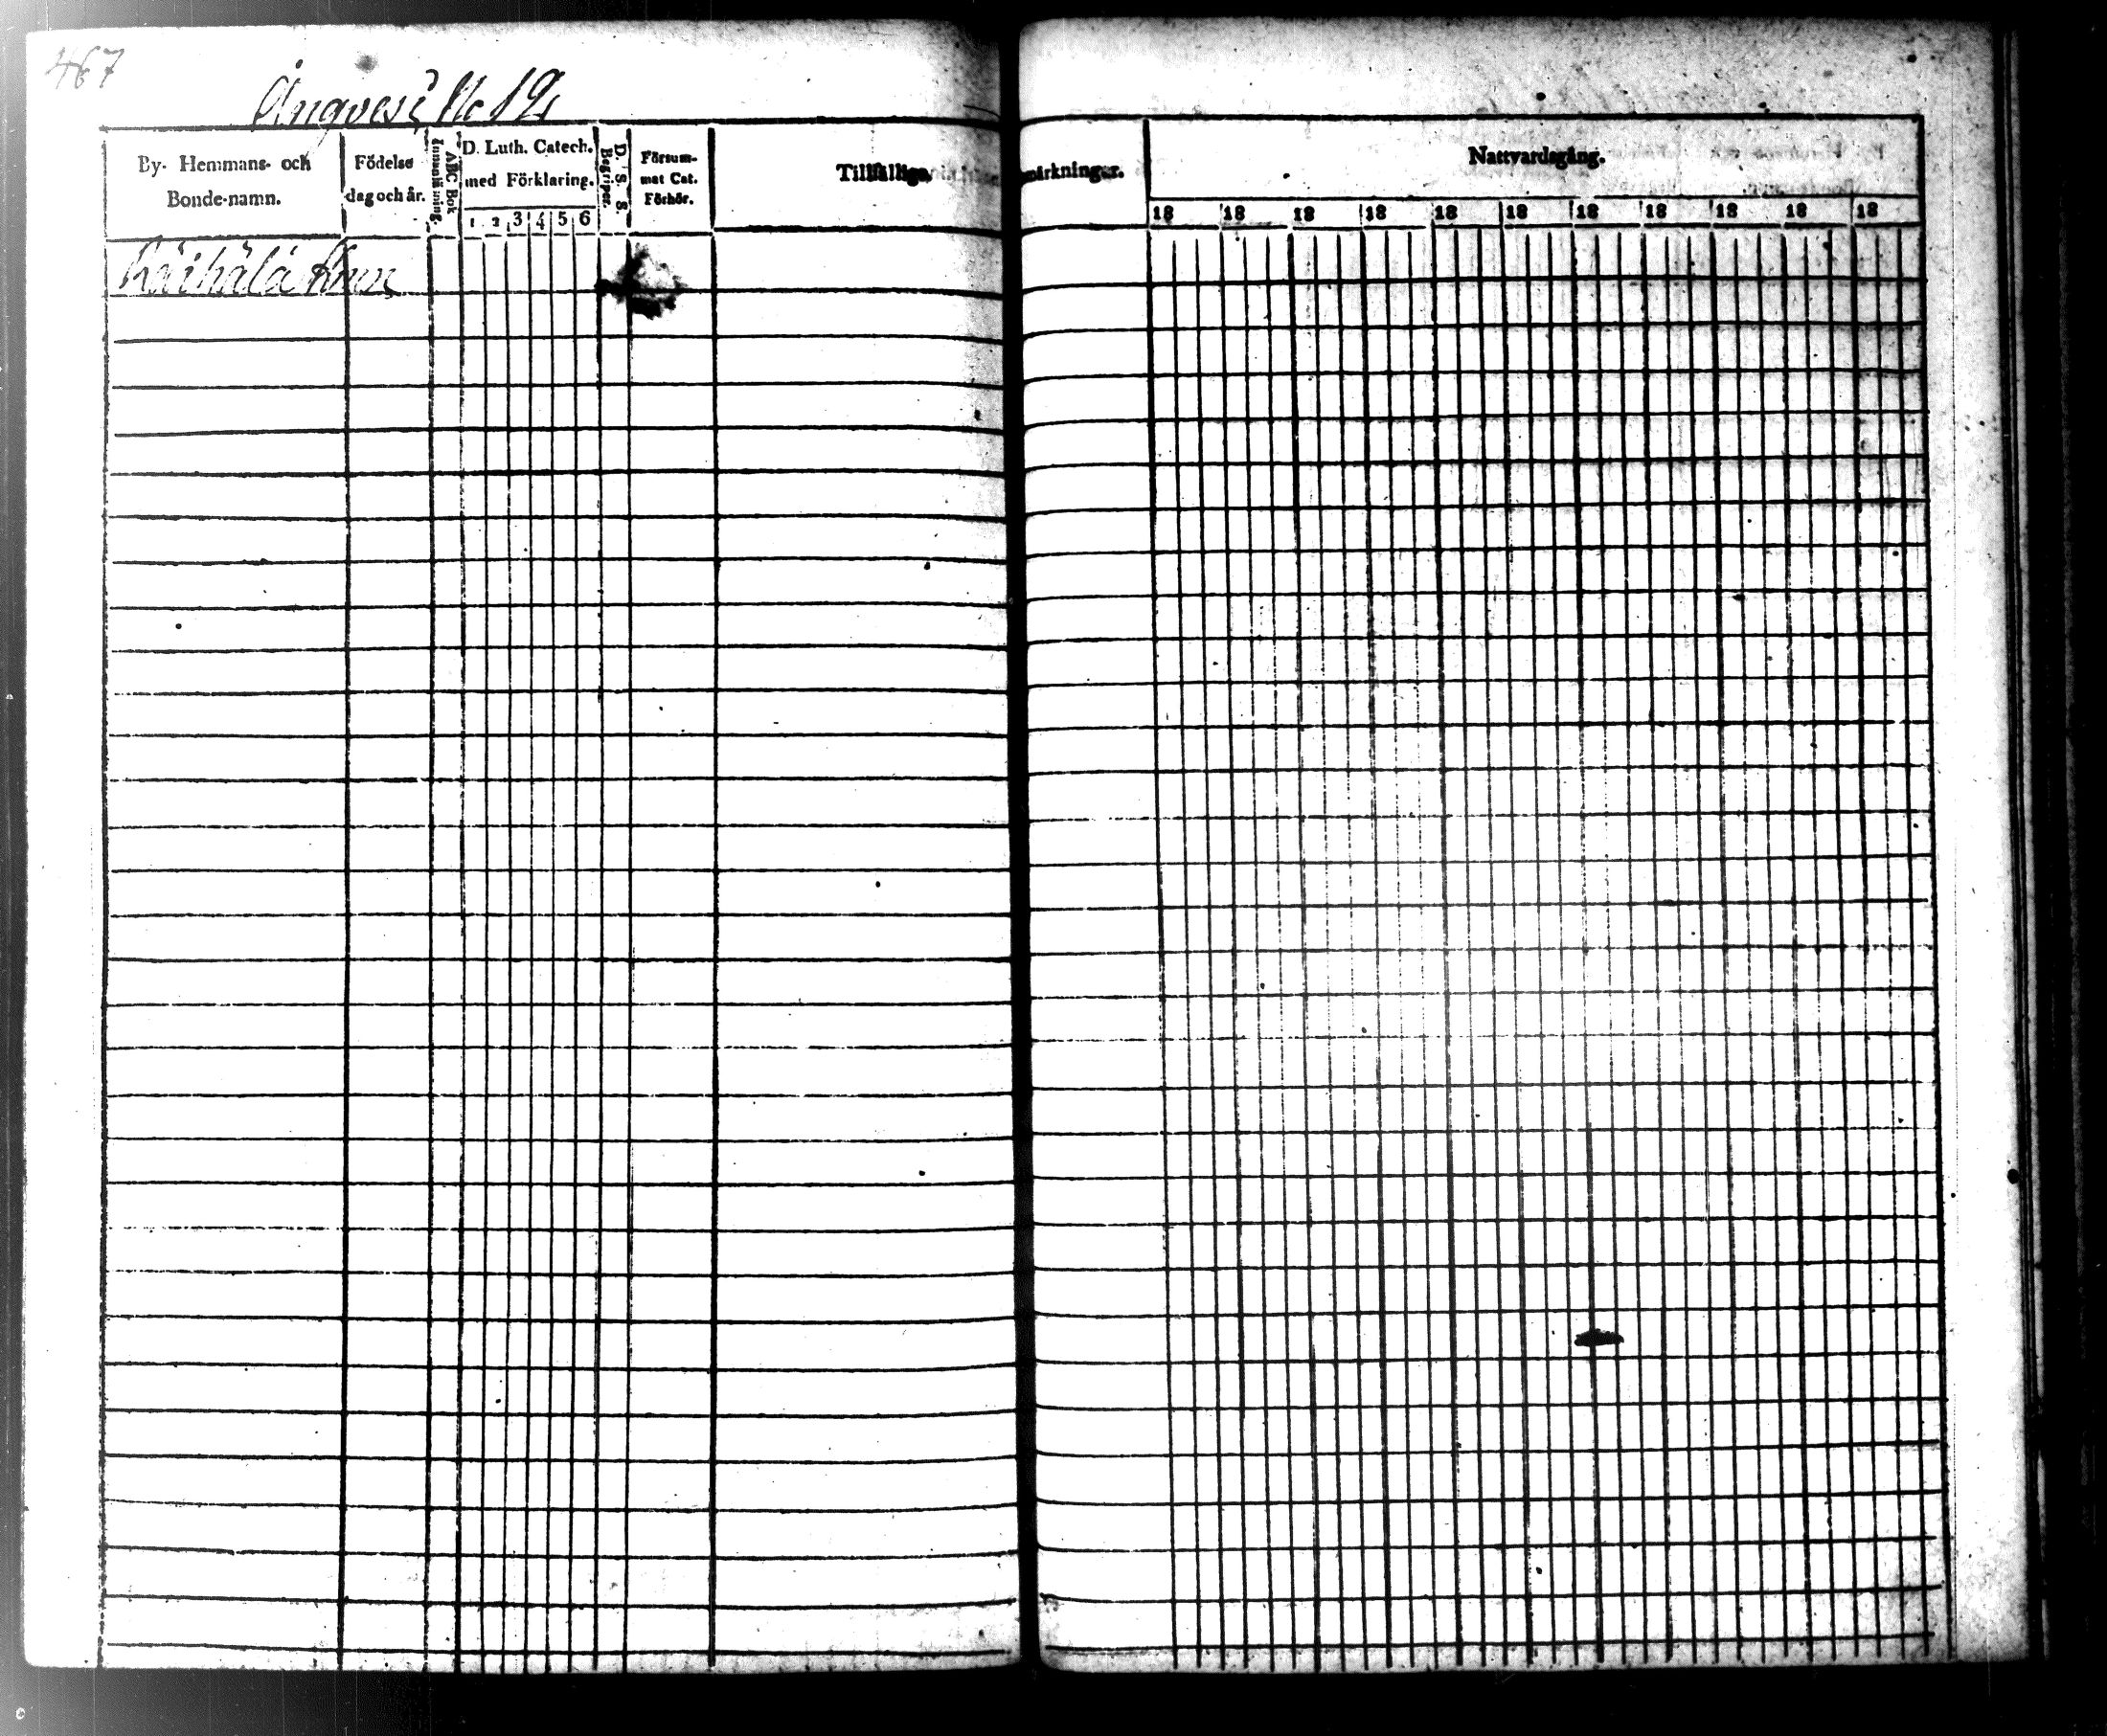 467
Ångvesi, No 19,
By- Hemmans- och Bonde-namn.
Födelse dag och år.
ABC Bok Innanläsning.
D. Luth. Catech. med Förklaring.
1 2 3 4 5 6
D. S. S. Begriper.
Försum- mat Cat. Förhör.
Tillfälliga
märkningar.
Nattvardsgång.
18 18 18 18 18 18 18 18 18 18 18
Räihälä